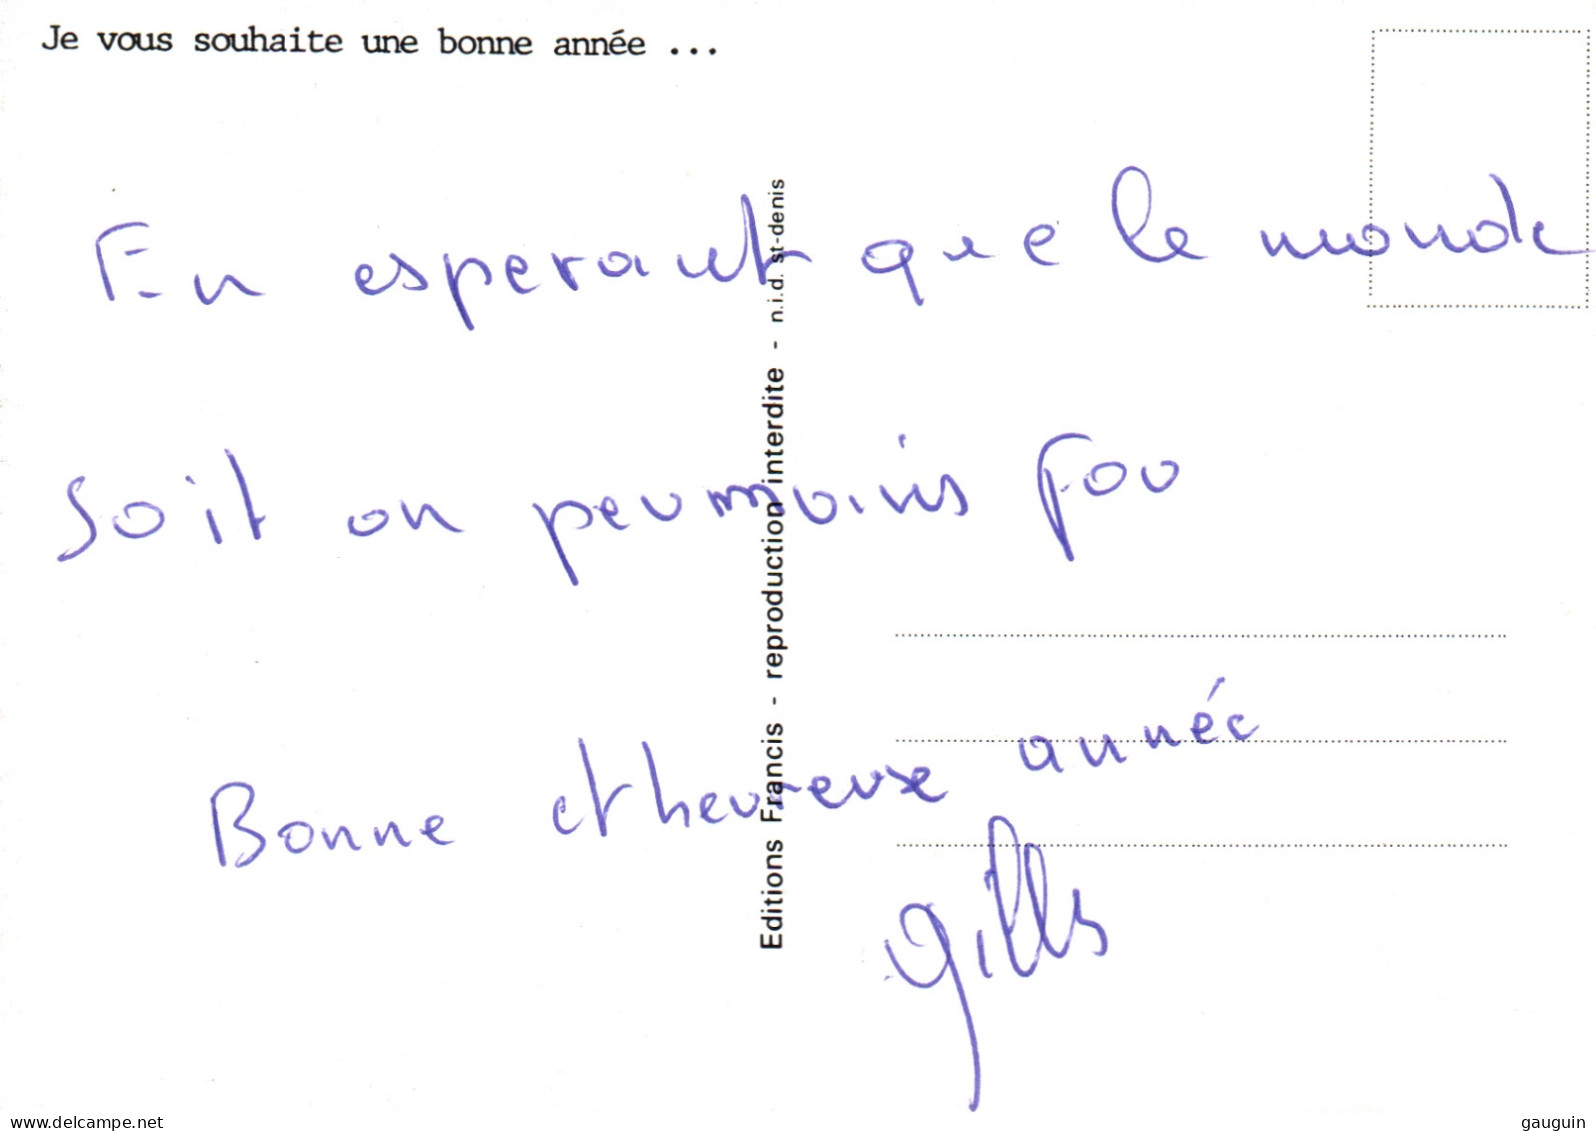 Je vous souhaite une bonne année ...
En esperant que le monde
soit on peu moins fou
Bonne et heureuse année
gills
Editions Francis - reproduction interdite - n.i.d. st-denis
www.delcampe.net
gauguin